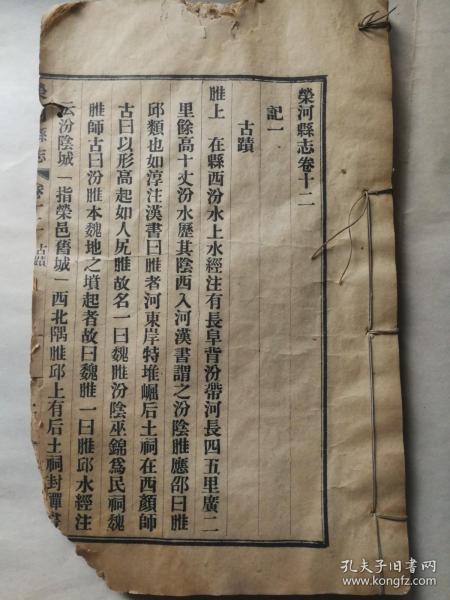 榮河縣志卷十二
記一
古蹟
脽上 在縣西汾水上水經注有長阜背汾帶河長四五里廣二
里餘高十丈汾水歷其陰西入河漢書謂之汾陰脽應邵曰脽
邱類也如淳注漢書曰脽者河東岸特堆崛后土祠在西顏師
古曰以形高起如人尻脽故名一曰魏脽汾陰巫錦爲民祠魏
脽師古曰汾脽本魏地之墳起者故曰魏脽一曰脽邱水經注
云汾陰城一指榮邑舊城一西北隅脽邱上有后土祠封禪書
縣志
古蹟
孔夫子旧书网
www.kongfz.com